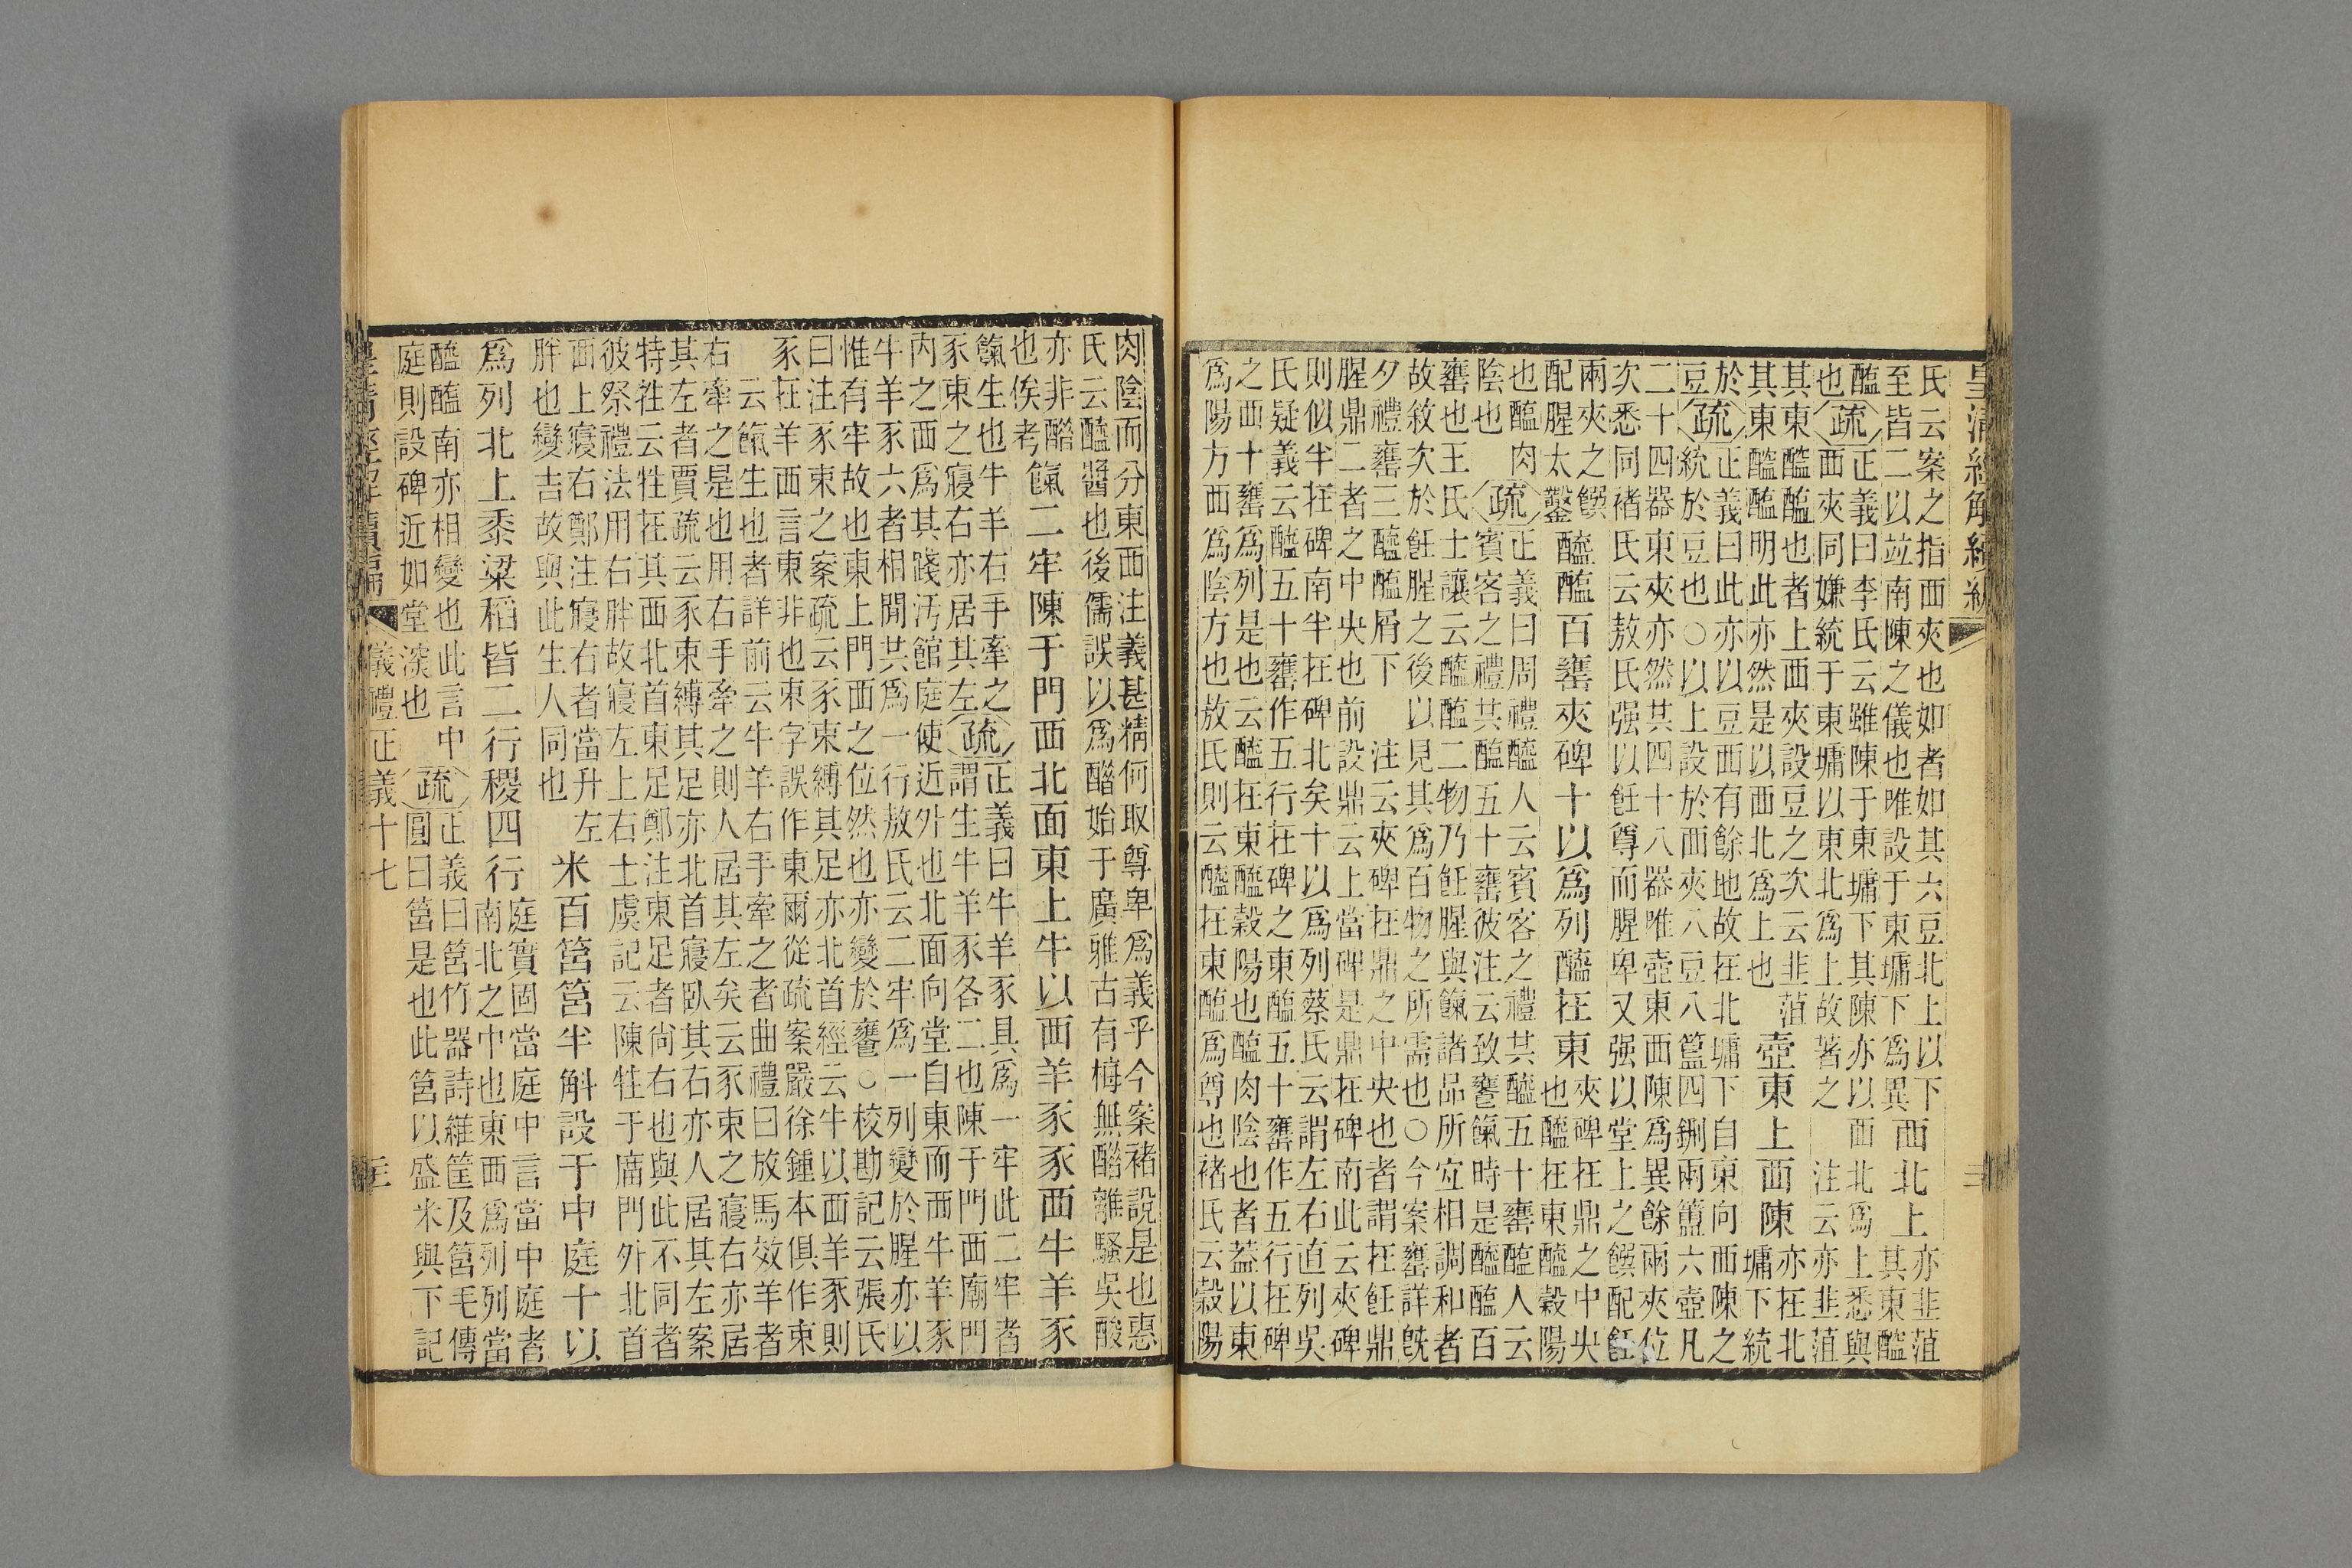 皇清經解續編
氏云案之指西夾也如者如其六豆北上以下
至皆二以竝南陳之儀也唯設于東墉下爲異
西北上
亦韭菹
其東醓
醢也
疏
正義曰李氏云雖陳于東墉下其陳亦以西北爲上悉與
西夾同嫌統于東墉以東北爲上故著之　注云亦韭菹
其東醓醢也者上西夾設豆之次云韭菹
其東醓醢明此亦然是以西北爲上也
壺東上西陳
亦在北
墉下統
於豆
疏
正義曰此亦以豆西有餘地故在北墉下自東向西陳之
統於豆也○以上設於西夾八豆八簋四鉶兩簠六壺凡
二十四器東夾亦然其四十八器唯壺東西陳爲異餘兩夾位
次悉同褚氏云敖氏强以飪尊而腥卑又强以堂上之饌配飪
兩夾之饌
配腥太鑿
醯醢百罋夾碑十以爲列醯在東
夾碑在鼎之中央
也醯在東醯穀陽
也醢肉
陰也
疏
正義曰周禮醯人云賓客之禮其醯五十罋醢人云
賓客之禮其醢五十罋彼注云致饔餼時是醯醢百
罋也王氏士讓云醯醢二物乃飪腥與餼諸品所宜相調和者
故敘次於飪腥之後以見其爲百物之所需也○今案罋詳旣
夕禮罋三醯醢屑下　注云夾碑在鼎之中央也者謂在飪鼎
腥鼎二者之中央也前設鼎云上當碑是鼎在碑南此云夾碑
則似半在碑南半在碑北矣十以爲列蔡氏云謂左右直列吳
氏疑義云醯五十罋作五行在碑之東醢五十罋作五行在碑
之西十罋爲列是也云醯在東醯穀陽也醢肉陰也者蓋以東
爲陽方西爲陰方也敖氏則云醯在東醯爲尊也褚氏云穀陽
肉陰而分東西注義甚精何取尊卑爲義乎今案褚說是也惠
氏云醯醬也後儒誤以爲醋始于廣雅古有梅無醋離騷吳酸
亦非醋
也俟考
餼二牢陳于門西北面東上牛以西羊豕豕西牛羊豕
餼生也牛羊右手牽之
豕東之寢右亦居其左
疏
正義曰牛羊豕具爲一牢此二牢者
謂生牛羊豕各二也陳于門西廟門
內之西爲其踐汚館庭使近外也北面向堂自東而西牛羊豕
牛羊豕六者相閒共爲一行敖氏云二牢爲一列變於腥亦以
惟有牢故也東上門西之位然也亦變於饔○校勘記云張氏
曰注豕東之案疏云豕束縛其足亦北首經云牛以西羊豕則
豕在羊西言東非也束字誤作東爾從疏案嚴徐鍾本俱作束
云餼生也者詳前云牛羊右手牽之者曲禮曰放馬效羊者
右牽之是也用右手牽之則人居其左矣云豕束之寢右亦居
其左者賈疏云豕束縛其足亦北首寢臥其右亦人居其左案
特牲云牲在其西北首東足鄭注東足者尙右也與此不同者
彼祭禮法用右胖故寢左上右士虞記云陳牲于廟門外北首
西上寢右鄭注寢右者當升左
胖也變吉故與此生人同也
米百筥筥半斛設于中庭十以
爲列北上黍粱稻皆二行稷四行
庭實固當庭中言當中庭者
南北之中也東西爲列列當
醯醢南亦相變也此言中
庭則設碑近如堂深也
疏
正義曰筥竹器詩維筐及筥毛傳
圓曰筥是也此筥以盛米與下記
皇清經解續編
儀禮正義十七